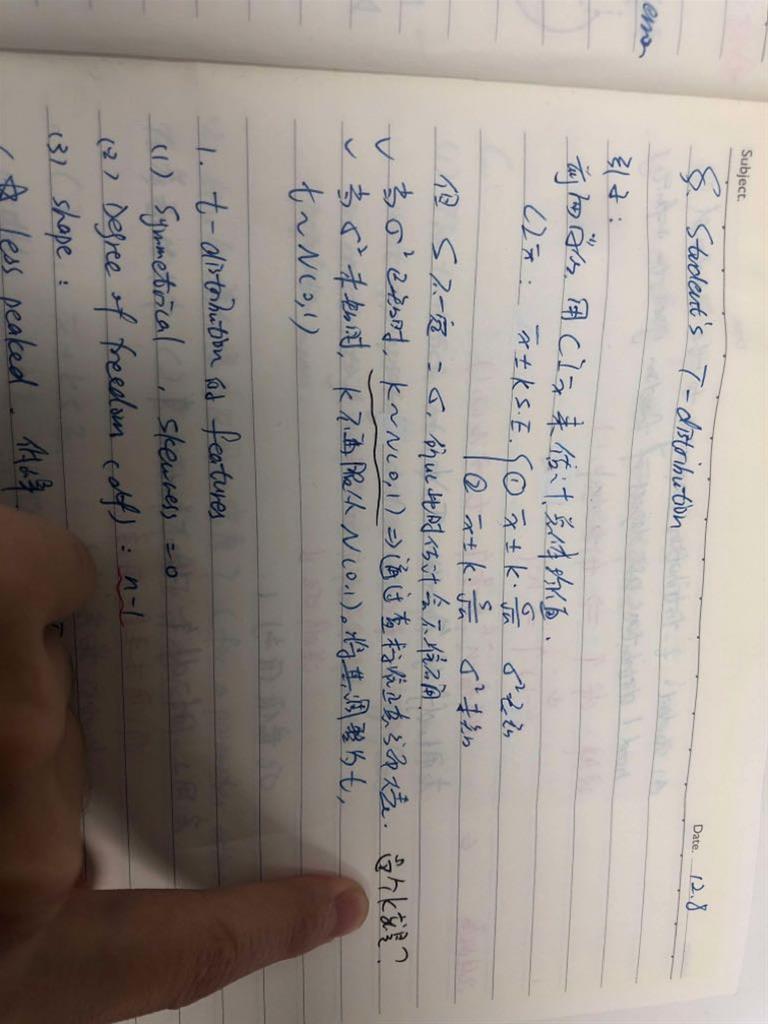 Subject.
Date. 12.8
§. Student's T-distribution
引子:
前面学过,用CI-x̄来估计总体均值.
CI-x̄: x̄ ± k S.E. ① x̄ ± k·σ/√n σ²已知
② x̄ ± k·s/√n σ²未知
但 S 不一定 = σ,
∨ 当σ²已知时, k~N(0,1) ⇒ 通过查标准正态分布表. 这个k就是?
∨ 当σ²未知时, k不再服从N(0,1)。将其调整为t,
t~N(0,1)
1. t-distribution 的 features
(1) Symmetrical, skewness=0
(2) Degree of freedom (df): n-1
(3) shape:
less peaked,